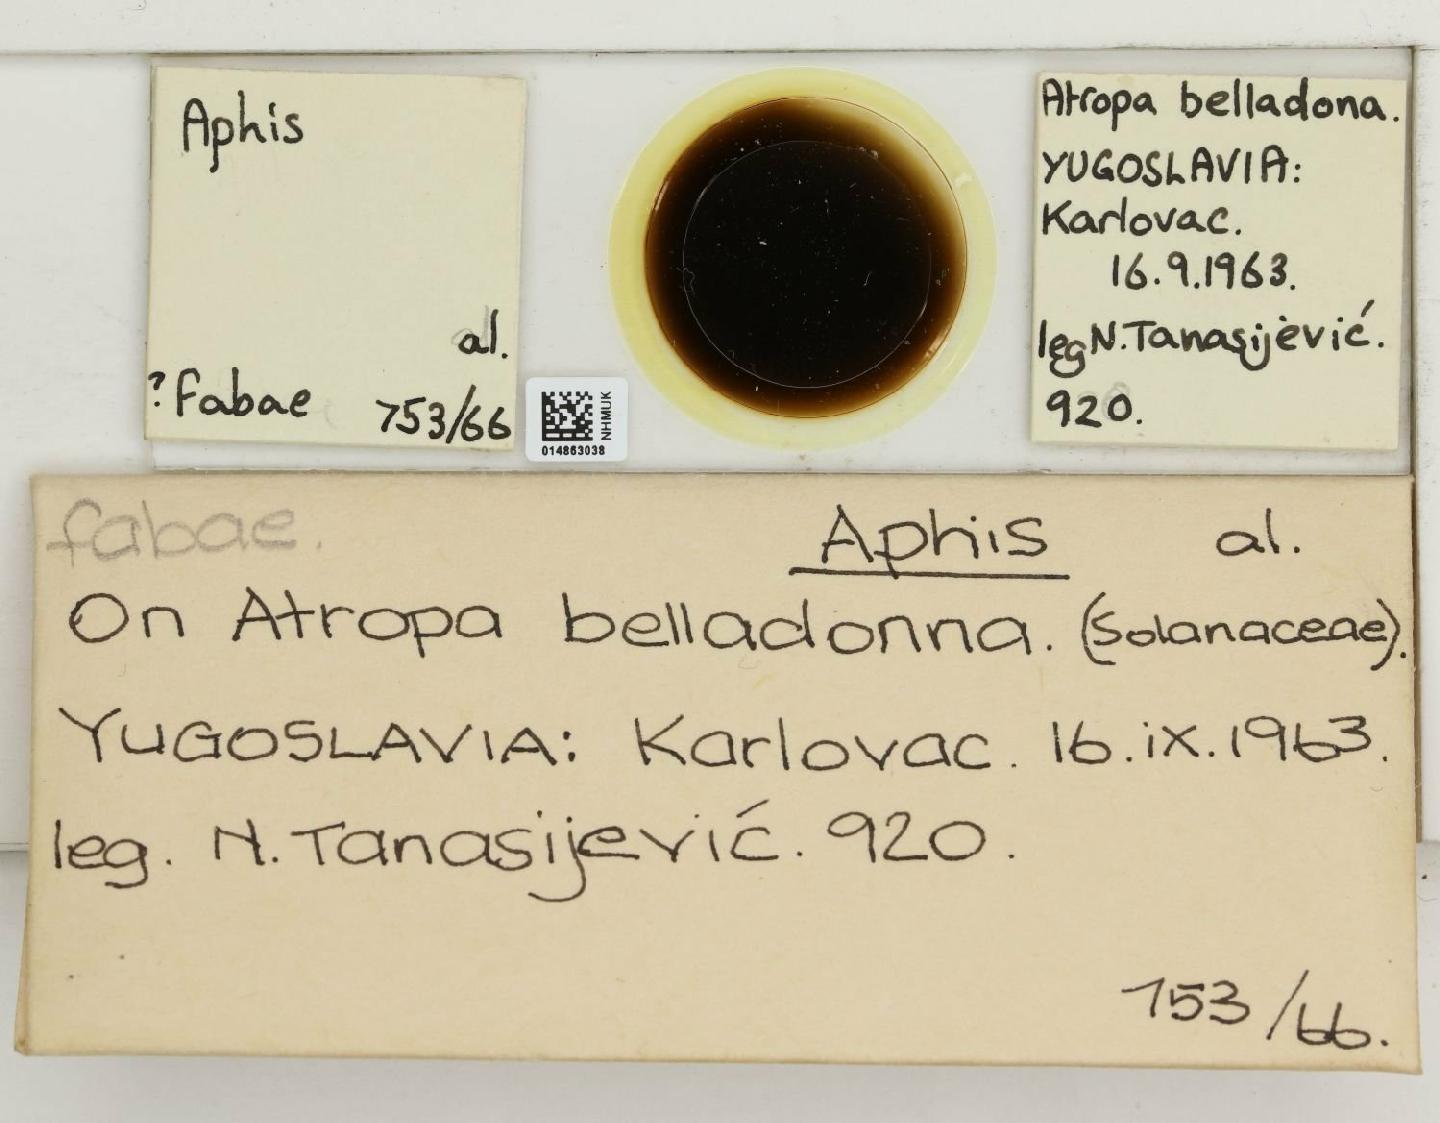 Aphis
al.
? fabae 753/66
NHMUK
014863038
Atropa belladona.
YUGOSLAVIA:
Karlovac.
16.9.1963.
leg N. Tanasijević.
920.
fabae. Aphis al.
On Atropa belladonna. (Solanaceae).
YUGOSLAVIA: Karlovac. 16.ix.1963.
leg. N. Tanasijević. 920.
753/66.